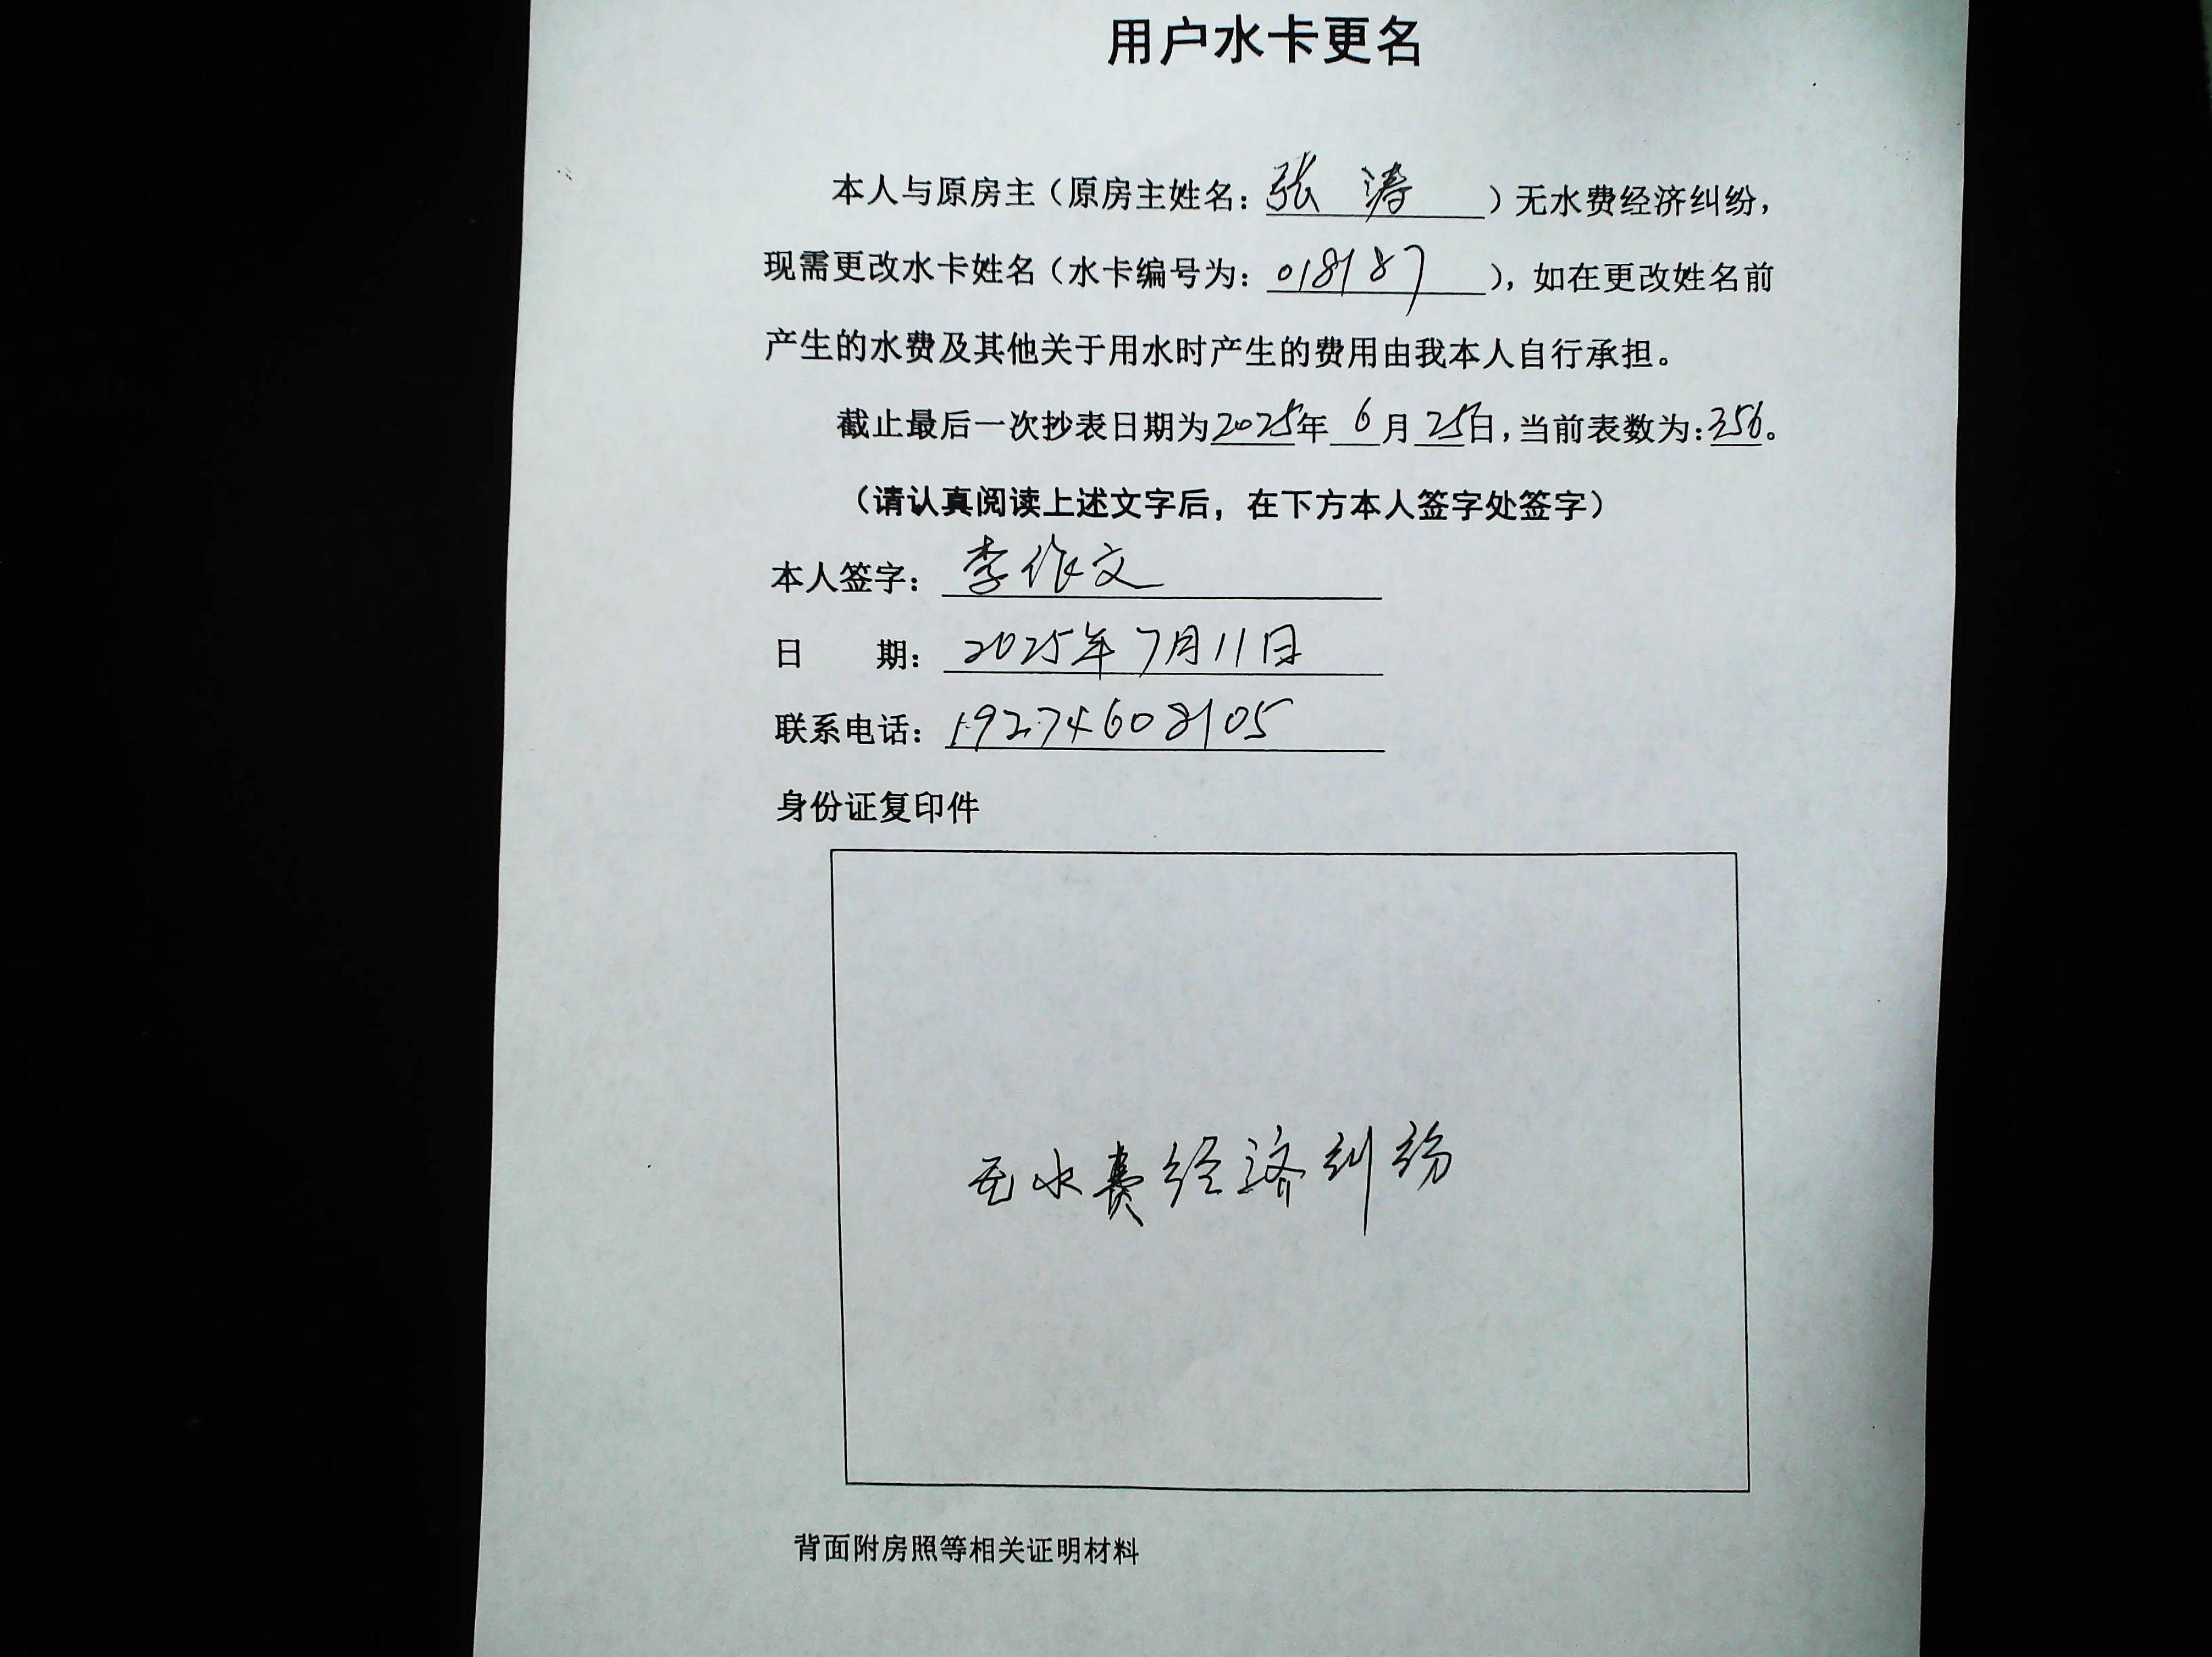 用户水卡更名
本人与原房主（原房主姓名：张涛）无水费经济纠纷，
现需更改水卡姓名（水卡编号为：018187），如在更改姓名前
产生的水费及其他关于用水时产生的费用由我本人自行承担。
截止最后一次抄表日期为2025年6月25日，当前表数为：356。
（请认真阅读上述文字后，在下方本人签字处签字）
本人签字：李作文
日 期：2025年7月11日
联系电话：19274608105
身份证复印件
无水费经济纠纷
背面附房照等相关证明材料